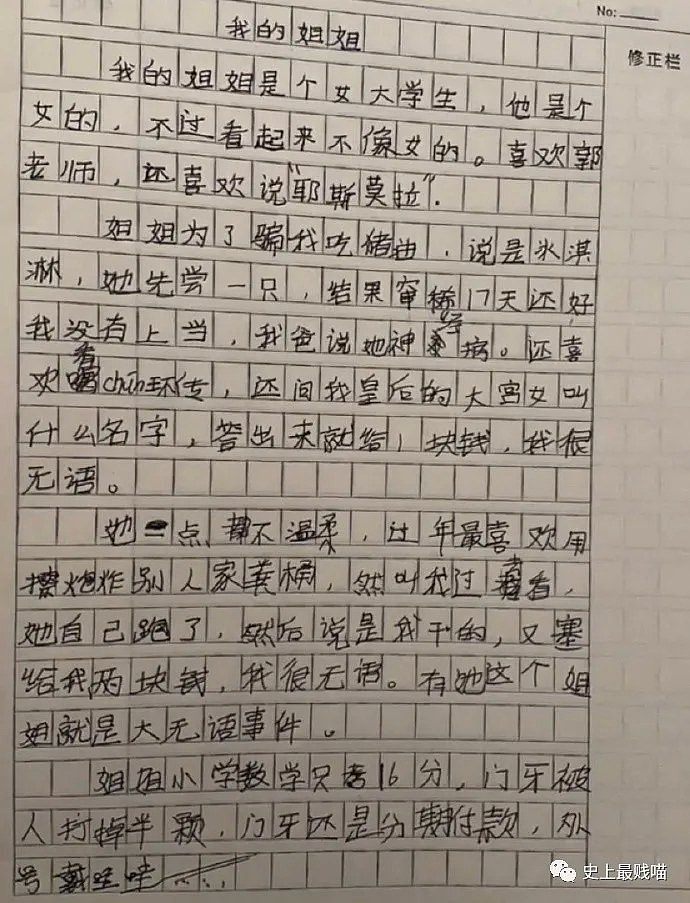 No:
修正栏
我的姐姐
我的姐姐是个女大学生，他是个
女的，不过看起来不像女的。喜欢郭
老师，还喜欢说“耶斯莫拉”.
姐姐为了骗我吃猪油，说是冰淇
淋，她先尝一只，结果窜稀17天还好
我没有上当，我爸说她神经病。还喜
欢看chún环传，还问我皇后的大宫女叫
什么名字，答出来就给1块钱，我很
无语。
她一点都不温柔，过年最喜欢用
擦炮炸别人家粪桶，然叫我过去看，
她自己跑了，然后说是我干的，又塞
给我两块钱，我很无语。有她这个姐
姐就是大无语事件。
姐姐小学数学只考16分，门牙被
人打掉半颗，门牙还是分期付款，外
号
史上最贱喵